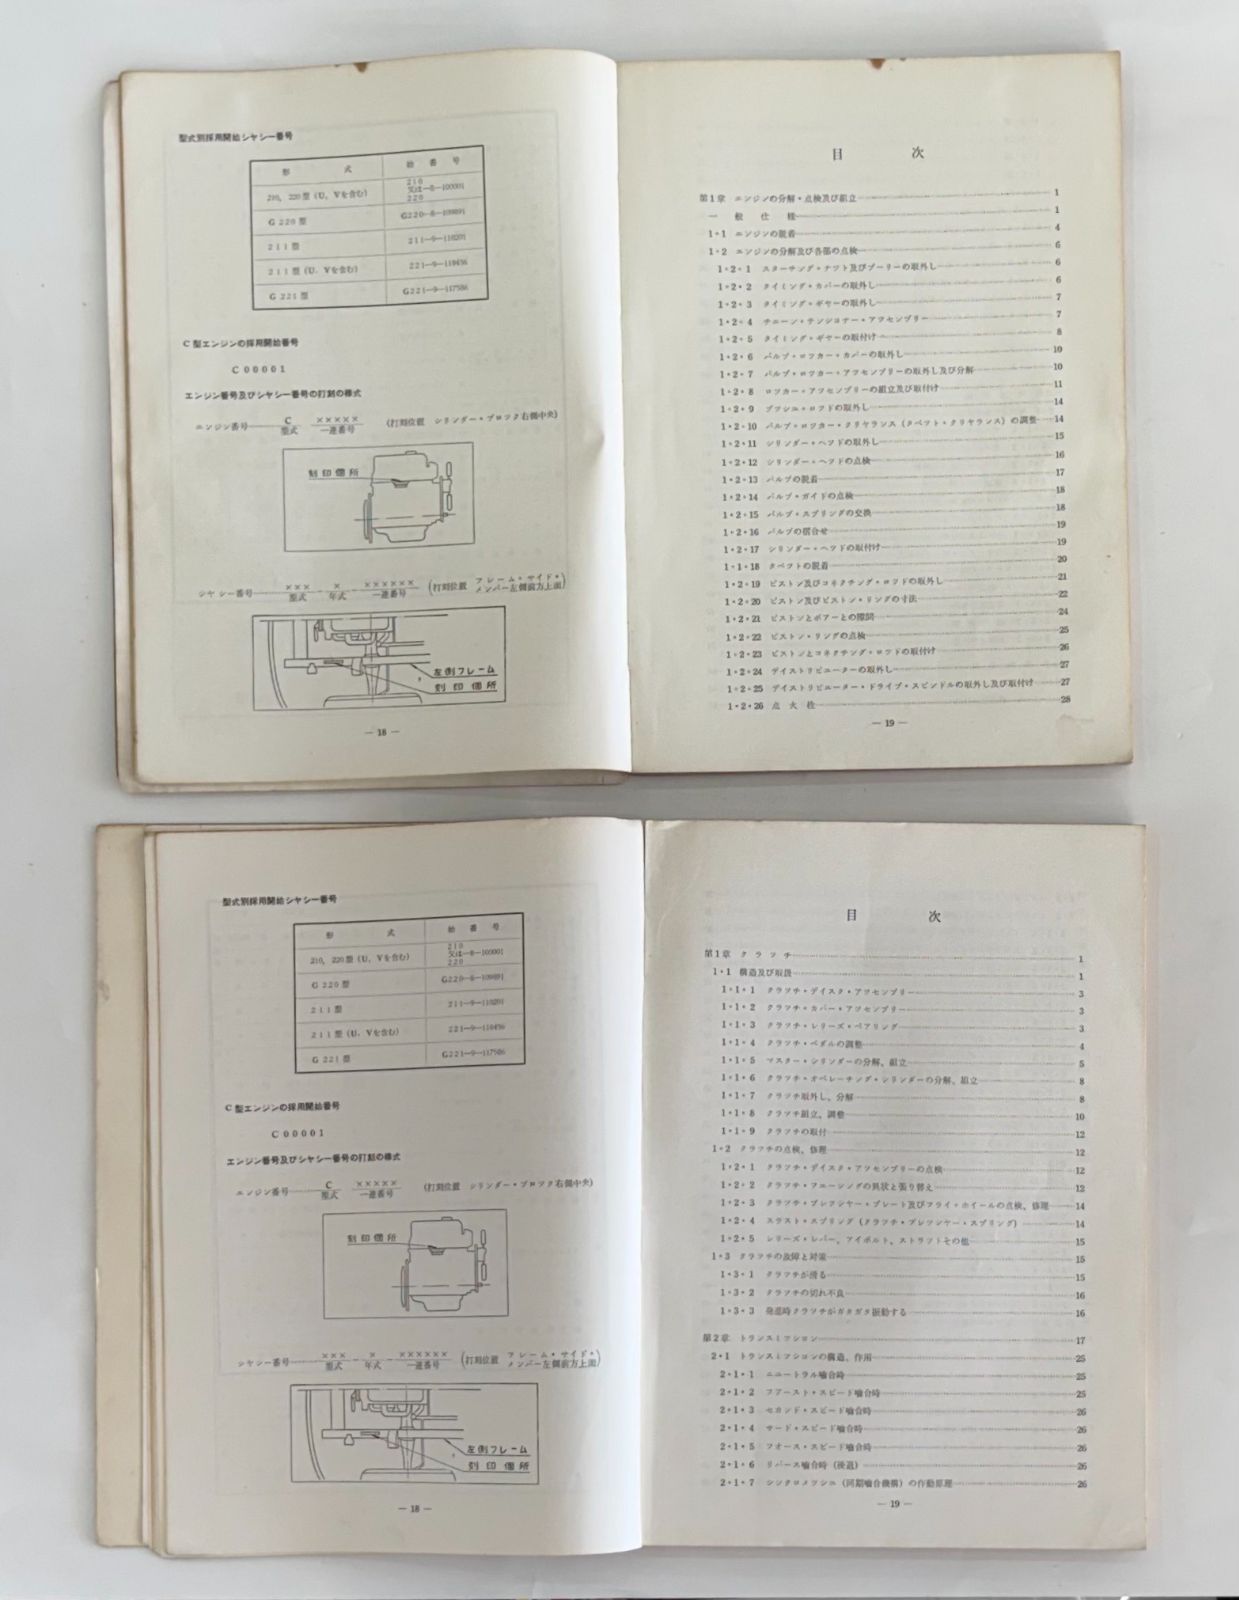 型式別採用開始シヤシー番号
形 式 始 番 号
210, 220型 (U, Vを含む) 210 又は—8—100001 220
G 220 型 G220—8—109891
211 型 211—9—110201
211 型 (U. Vを含む) 221—9—110456
G 221 型 G221—9—117586
C 型エンジンの採用開始番号
C 0 0 0 0 1
エンジン番号及びシヤシー番号の打刻の様式
エンジン番号 C 型式 ××××× 一連番号 (打刻位置 シリンダー・ブロツク右側中央)
刻印個所
シヤシー番号 ××× 型式 - × 年式 - ×××××× 一連番号 (打刻位置 フレーム・サイド・メンバー左側前方上面)
左側フレーム
刻印個所
— 18 —
目 次
第1章 エンジンの分解・点検及び組立 1
一 般 仕 様 1
1・1 エンジンの脱着 4
1・2 エンジンの分解及び各部の点検 6
1・2・1 スターチング・ナツト及びプーリーの取外し 6
1・2・2 タイミング・カバーの取外し 6
1・2・3 タイミング・ギヤーの取外し 7
1・2・4 チエーン・テンシヨナー・アツセンブリー 7
1・2・5 タイミング・ギヤーの取付け 8
1・2・6 バルブ・ロツカー・カバーの取外し 10
1・2・7 バルブ・ロツカー・アツセンブリーの取外し及び分解 10
1・2・8 ロツカー・アツセンブリーの組立及び取付け 11
1・2・9 プツシユ・ロツドの取外し 14
1・2・10 バルブ・ロツカー・クリヤランス (タペツト・クリヤランス) の調整 14
1・2・11 シリンダー・ヘツドの取外し 15
1・2・12 シリンダー・ヘツドの点検 16
1・2・13 バルブの脱着 17
1・2・14 バルブ・ガイドの点検 18
1・2・15 バルブ・スプリングの交換 18
1・2・16 バルブの摺合せ 19
1・2・17 シリンダー・ヘツドの取付け 19
1・1・18 タペツトの脱着 20
1・2・19 ピストン及びコネクチング・ロツドの取外し 21
1・2・20 ピストン及びピストン・リングの寸法 22
1・2・21 ピストンとボアーとの隙間 24
1・2・22 ピストン・リングの点検 25
1・2・23 ピストンとコネクチング・ロツドの取付け 26
1・2・24 デイストリビユーターの取外し 27
1・2・25 デイストリビユーター・ドライブ・スピンドルの取外し及び取付け 27
1・2・26 点 火 栓 28
— 19 —
型式別採用開始シヤシー番号
形 式 始 番 号
210, 220型 (U, Vを含む) 210 又は—8—100001 220
G 220 型 G220—8—109891
211 型 211—9—110201
211 型 (U, Vを含む) 221—9—110456
G 221 型 G221—9—117586
C 型エンジンの採用開始番号
C 0 0 0 0 1
エンジン番号及びシヤシー番号の打刻の様式
エンジン番号 C 型式 ××××× 一連番号 (打刻位置 シリンダー・ブロツク右側中央)
刻印個所
シヤシー番号 ××× 型式 - × 年式 - ×××××× 一連番号 (打刻位置 フレーム・サイド・メンバー左側前方上面)
左側フレーム
刻印個所
— 18 —
目 次
第1章 ク ラ ツ チ 1
1・1 構造及び取扱 1
1・1・1 クラツチ・デイスク・アツセンブリー 3
1・1・2 クラツチ・カバー・アツセンブリー 3
1・1・3 クラツチ・レリーズ・ベアリング 3
1・1・4 クラツチ・ペダルの調整 4
1・1・5 マスター・シリンダーの分解、組立 5
1・1・6 クラツチ・オペレーチング・シリンダーの分解、組立 8
1・1・7 クラツチ取外し、分解 8
1・1・8 クラツチ組立、調整 10
1・1・9 クラツチの取付 12
1・2 クラツチの点検、修理 12
1・2・1 クラツチ・デイスク・アツセンブリーの点検 12
1・2・2 クラツチ・フエーシングの状と張り替え 12
1・2・3 クラツチ・プレツシヤー・プレート及びフライ・ホイールの点検、修理 14
1・2・4 スラスト・スプリング (クラツチ・プレツシヤー・スプリング) 14
1・2・5 シリーズ・レバー、アイボルト、ストラツトその他 15
1・3 クラツチの故障と対策 15
1・3・1 クラツチが滑る 15
1・3・2 クラツチの切れ不良 16
1・3・3 発進時クラツチがガタガタ振動する 16
第2章 トランスミツシヨン 17
2・1 トランスミツシヨンの構造、作用 25
2・1・1 ニユートラル噛合時 25
2・1・2 フアースト・スピード噛合時 25
2・1・3 セカンド・スピード噛合時 26
2・1・4 サード・スピード噛合時 26
2・1・5 フオース・スピード噛合時 26
2・1・6 リバース噛合時 (後退) 26
2・1・7 シンクロメツシユ (同期噛合機構) の作動原理 26
— 19 —